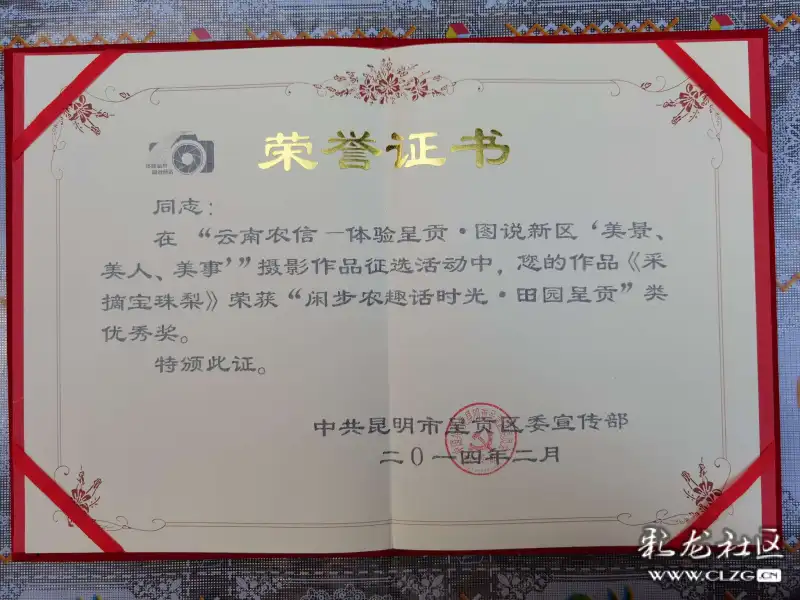 荣誉证书
同志：
在“云南农信—体验呈贡·图说新区‘美景、
美人、美事’”摄影作品征选活动中，您的作品《采
摘宝珠梨》荣获“闲步农趣话时光·田园呈贡”类
优秀奖。
特颁此证。
中共昆明市呈贡区委宣传部
二0一四年二月
彩龙社区
WWW.CLZG.CN